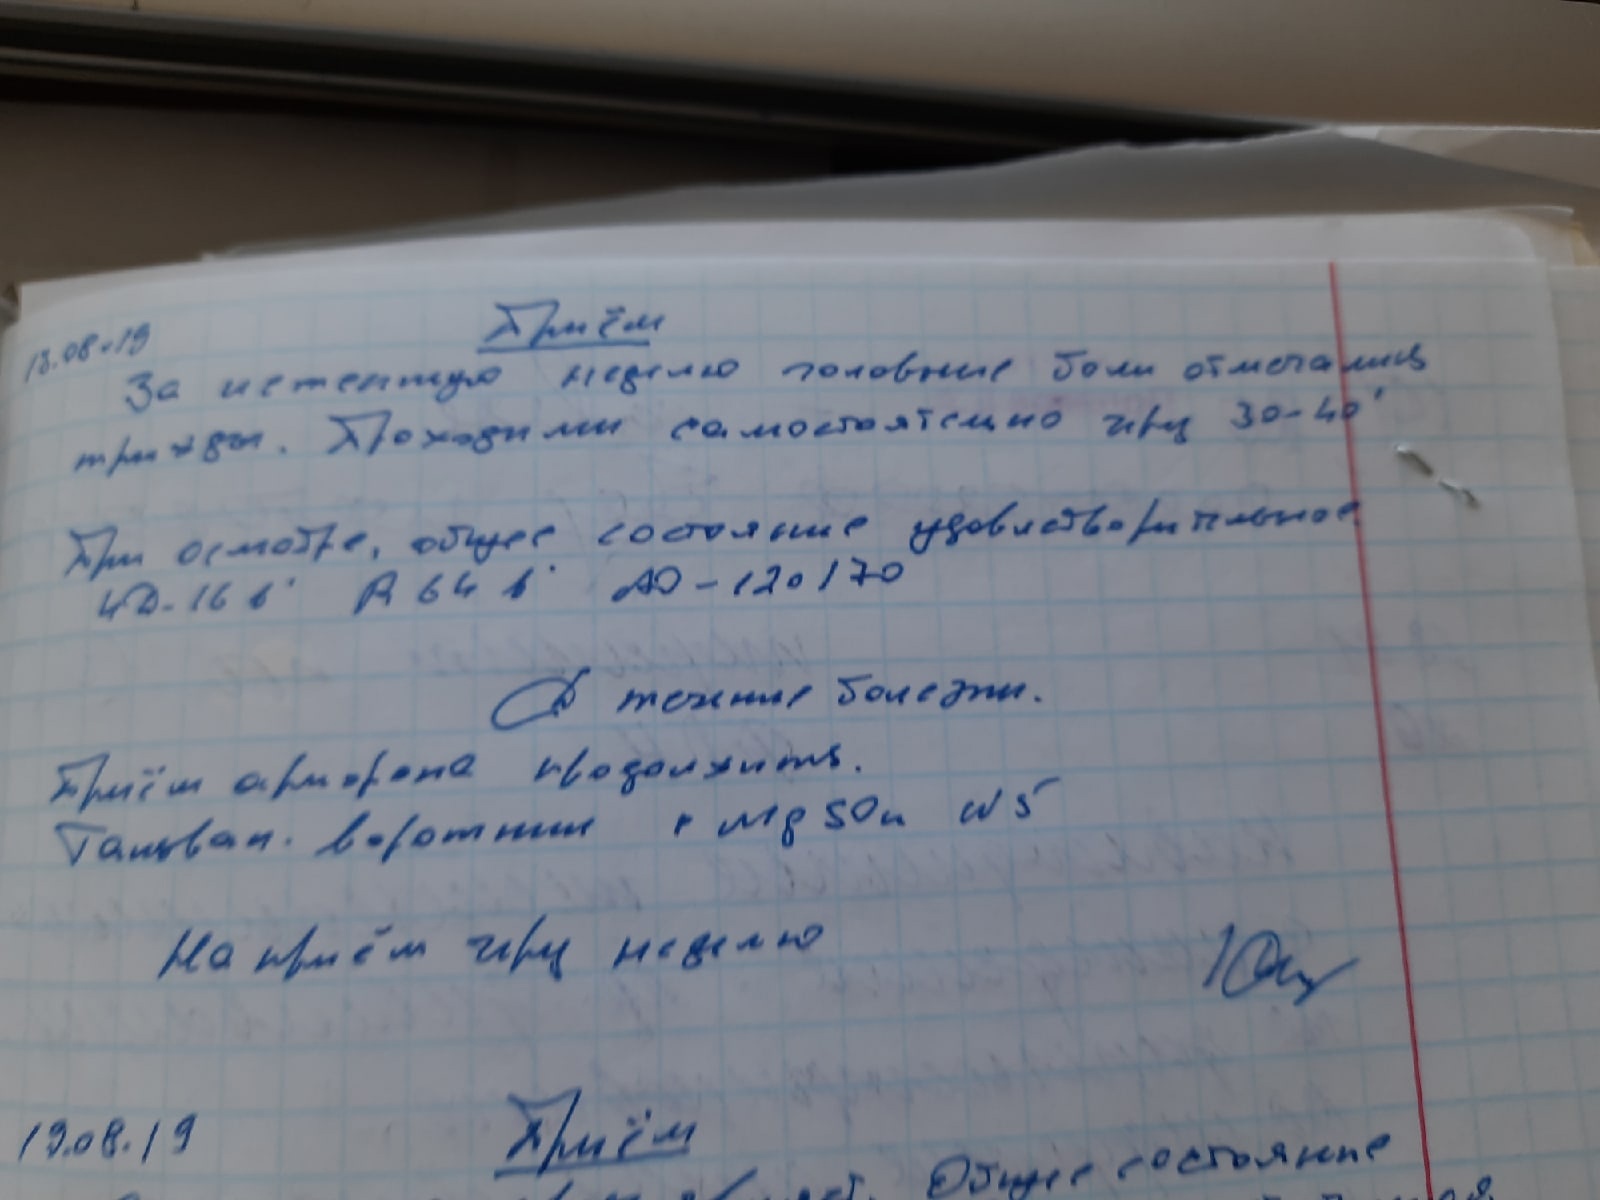 13.08.19 Приём
За истекшую неделю головные боли отмечались
трижды. Проходили самостоятельно чрез 30-40'
При осмотре, общее состояние удовлетворительное
ЧД-16 в' Ps 64 в' АД-120/70
Ds течение болезни.
Приём продолжить.
Гальван. воротник с MgSO4 N5
На приём чрез неделю
19.08.19 Приём
Общее состояние